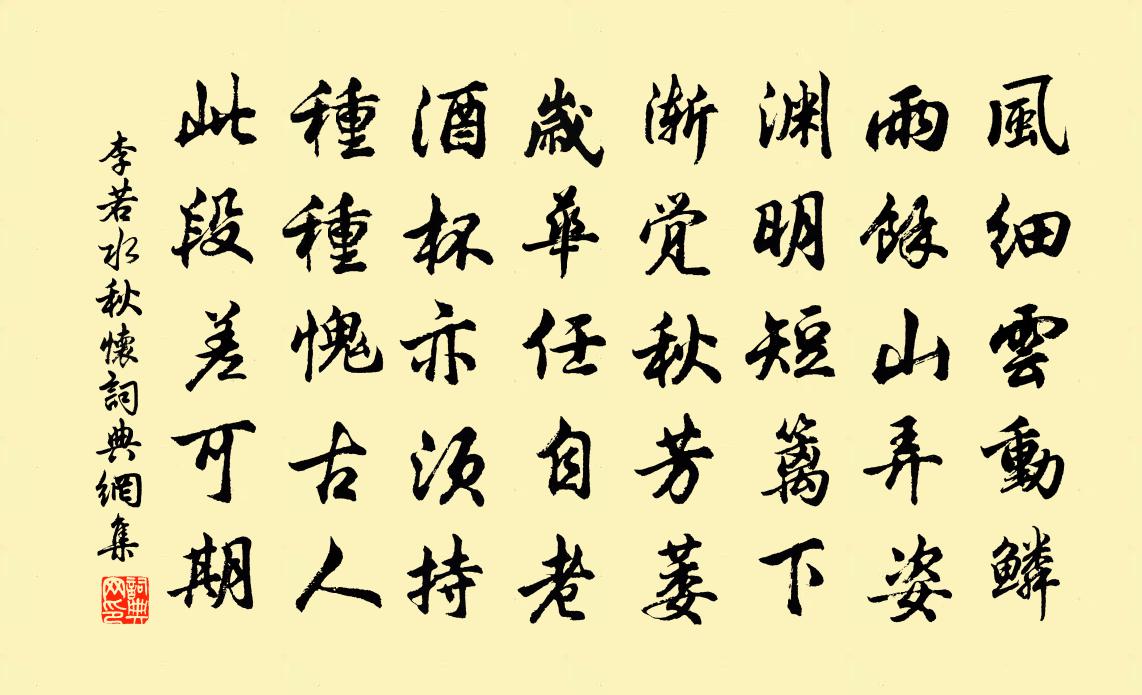 風細雲動鱗
雨餘山弄姿
渊明短篱下
渐觉秋芳萎
歲華任自老
酒杯亦须持
種種愧古人
此段差可期
李若水秋懷詞典網集
詞典网印